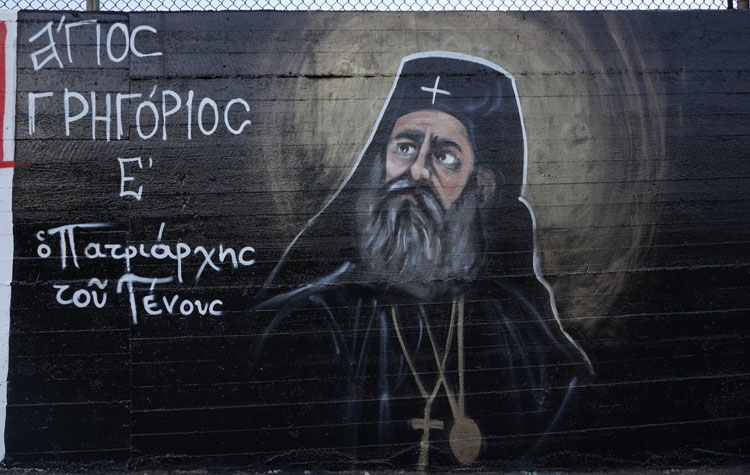 ἅγιος
ΓΡΗΓόΡΙΟς
Ε'
ὁ Πατριάρχης
τοῦ Γένους